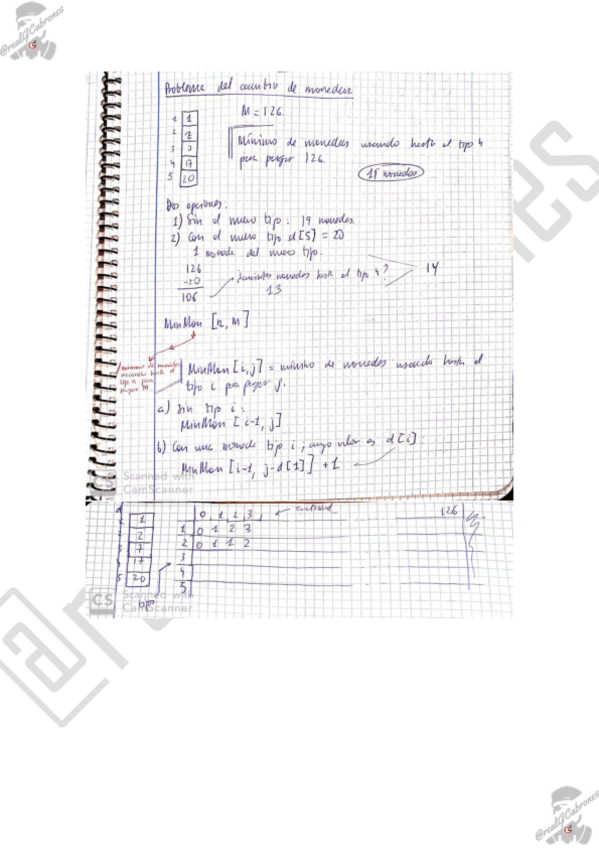 @realGCabrones
Problema del cambio de monedas
M = 126
1 1
2 2
3 7
4 17
5 20
Mínimo de monedas usando hasta el tipo 4
para pagar 126.
Dos opciones:
1) Sin el nuevo tipo:
2) Con el nuevo tipo d[5] = 20
1 moneda del nuevo tipo.
126
-20
106
¿cuántas monedas hasta el tipo 4?
13
14
MinMon [n, M]
MinMon [i,j] = mínimo de monedas usando hasta el
tipo i para pagar j.
a) Sin tipo i:
MinMon [i-1, j]
b) Con una moneda tipo i, cuyo valor es d[i]:
MinMon [i-1, j-d[i]] + 1
CS Scanned with
CamScanner
d
1
2
7
17
5 20
tipo
0 1 2 3 cantidad 126
1 0 1 2 3
2 0 1 1 2
3
4
5
CS Scanned with
CamScanner
@realGCabrones